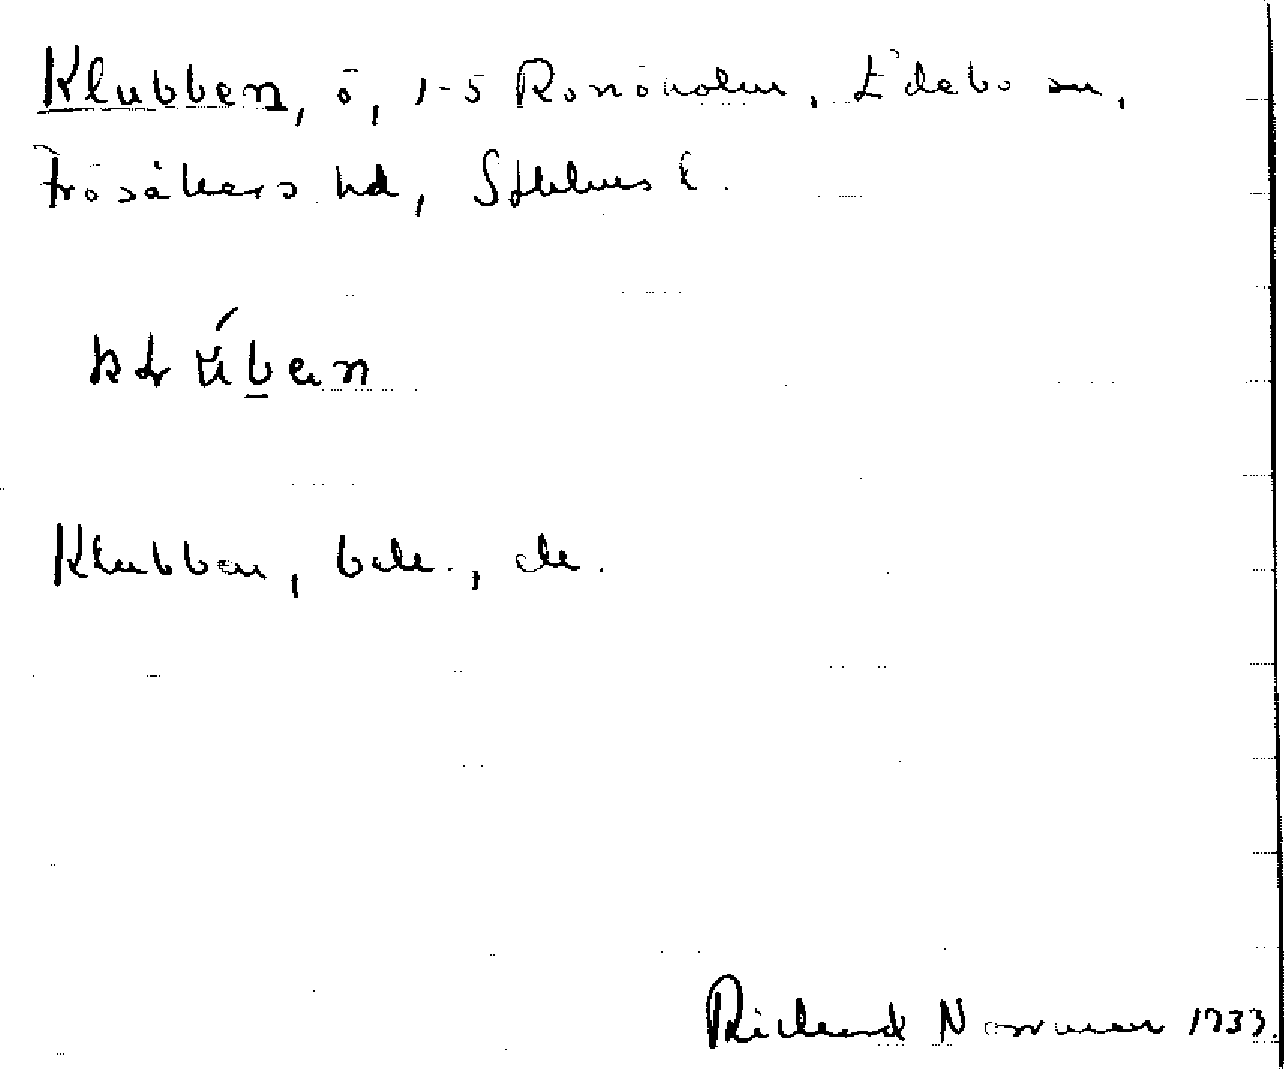 Klubben, ö, 1-5 Ronöholm, Edebo sn,
Frösåkers hd, Sthlms l.
Klubben, bek., ek.
Richard Norrman 1933.